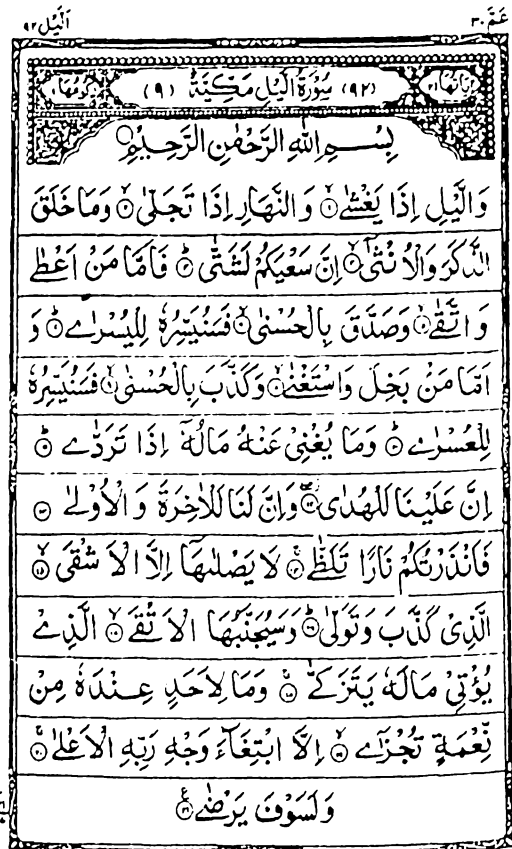 اَلَّيْل ٩٢
عَمَّ ٣٠
اٰيَاتُهَا ٢١ (٩٢) سُوْرَةُ الَّيْلِ مَكِّيَّةٌ (٩) رُكُوْعُهَا ١
بِسْمِ اللّٰهِ الرَّحْمٰنِ الرَّحِيْمِ
وَالَّيْلِ اِذَا يَغْشٰى ۙ﴿١﴾ وَالنَّهَارِ اِذَا تَجَلّٰى ۙ﴿٢﴾ وَمَا خَلَقَ
الذَّكَرَ وَالْاُنْثٰىٓ ۙ﴿٣﴾ اِنَّ سَعْيَكُمْ لَشَتّٰى ؕ﴿٤﴾ فَاَمَّا مَنْ اَعْطٰى
وَاتَّقٰى ۙ﴿٥﴾ وَصَدَّقَ بِالْحُسْنٰى ۙ﴿٦﴾ فَسَنُيَسِّرُهٗ لِلْيُسْرٰى ؕ﴿٧﴾ وَ
اَمَّا مَنْۢ بَخِلَ وَاسْتَغْنٰى ۙ﴿٨﴾ وَكَذَّبَ بِالْحُسْنٰى ۙ﴿٩﴾ فَسَنُيَسِّرُهٗ
لِلْعُسْرٰى ؕ﴿١٠﴾ وَمَا يُغْنِيْ عَنْهُ مَالُهٗٓ اِذَا تَرَدّٰى ؕ﴿١١﴾
اِنَّ عَلَيْنَا لَلْهُدٰى ۖ﴿١٢﴾ وَاِنَّ لَنَا لَلْاٰخِرَةَ وَالْاُوْلٰى ﴿١٣﴾
فَاَنْذَرْتُكُمْ نَارًا تَلَظّٰى ۚ﴿١٤﴾ لَا يَصْلٰىهَآ اِلَّا الْاَشْقَى ۙ﴿١٥﴾
الَّذِيْ كَذَّبَ وَتَوَلّٰى ؕ﴿١٦﴾ وَسَيُجَنَّبُهَا الْاَتْقَى ۙ﴿١٧﴾ الَّذِيْ
يُؤْتِيْ مَالَهٗ يَتَزَكّٰى ۚ﴿١٨﴾ وَمَا لِاَحَدٍ عِنْدَهٗ مِنْ
نِّعْمَةٍ تُجْزٰٓى ۙ﴿١٩﴾ اِلَّا ابْتِغَآءَ وَجْهِ رَبِّهِ الْاَعْلٰى ۚ﴿٢٠﴾
وَلَسَوْفَ يَرْضٰى ﴿٢١﴾